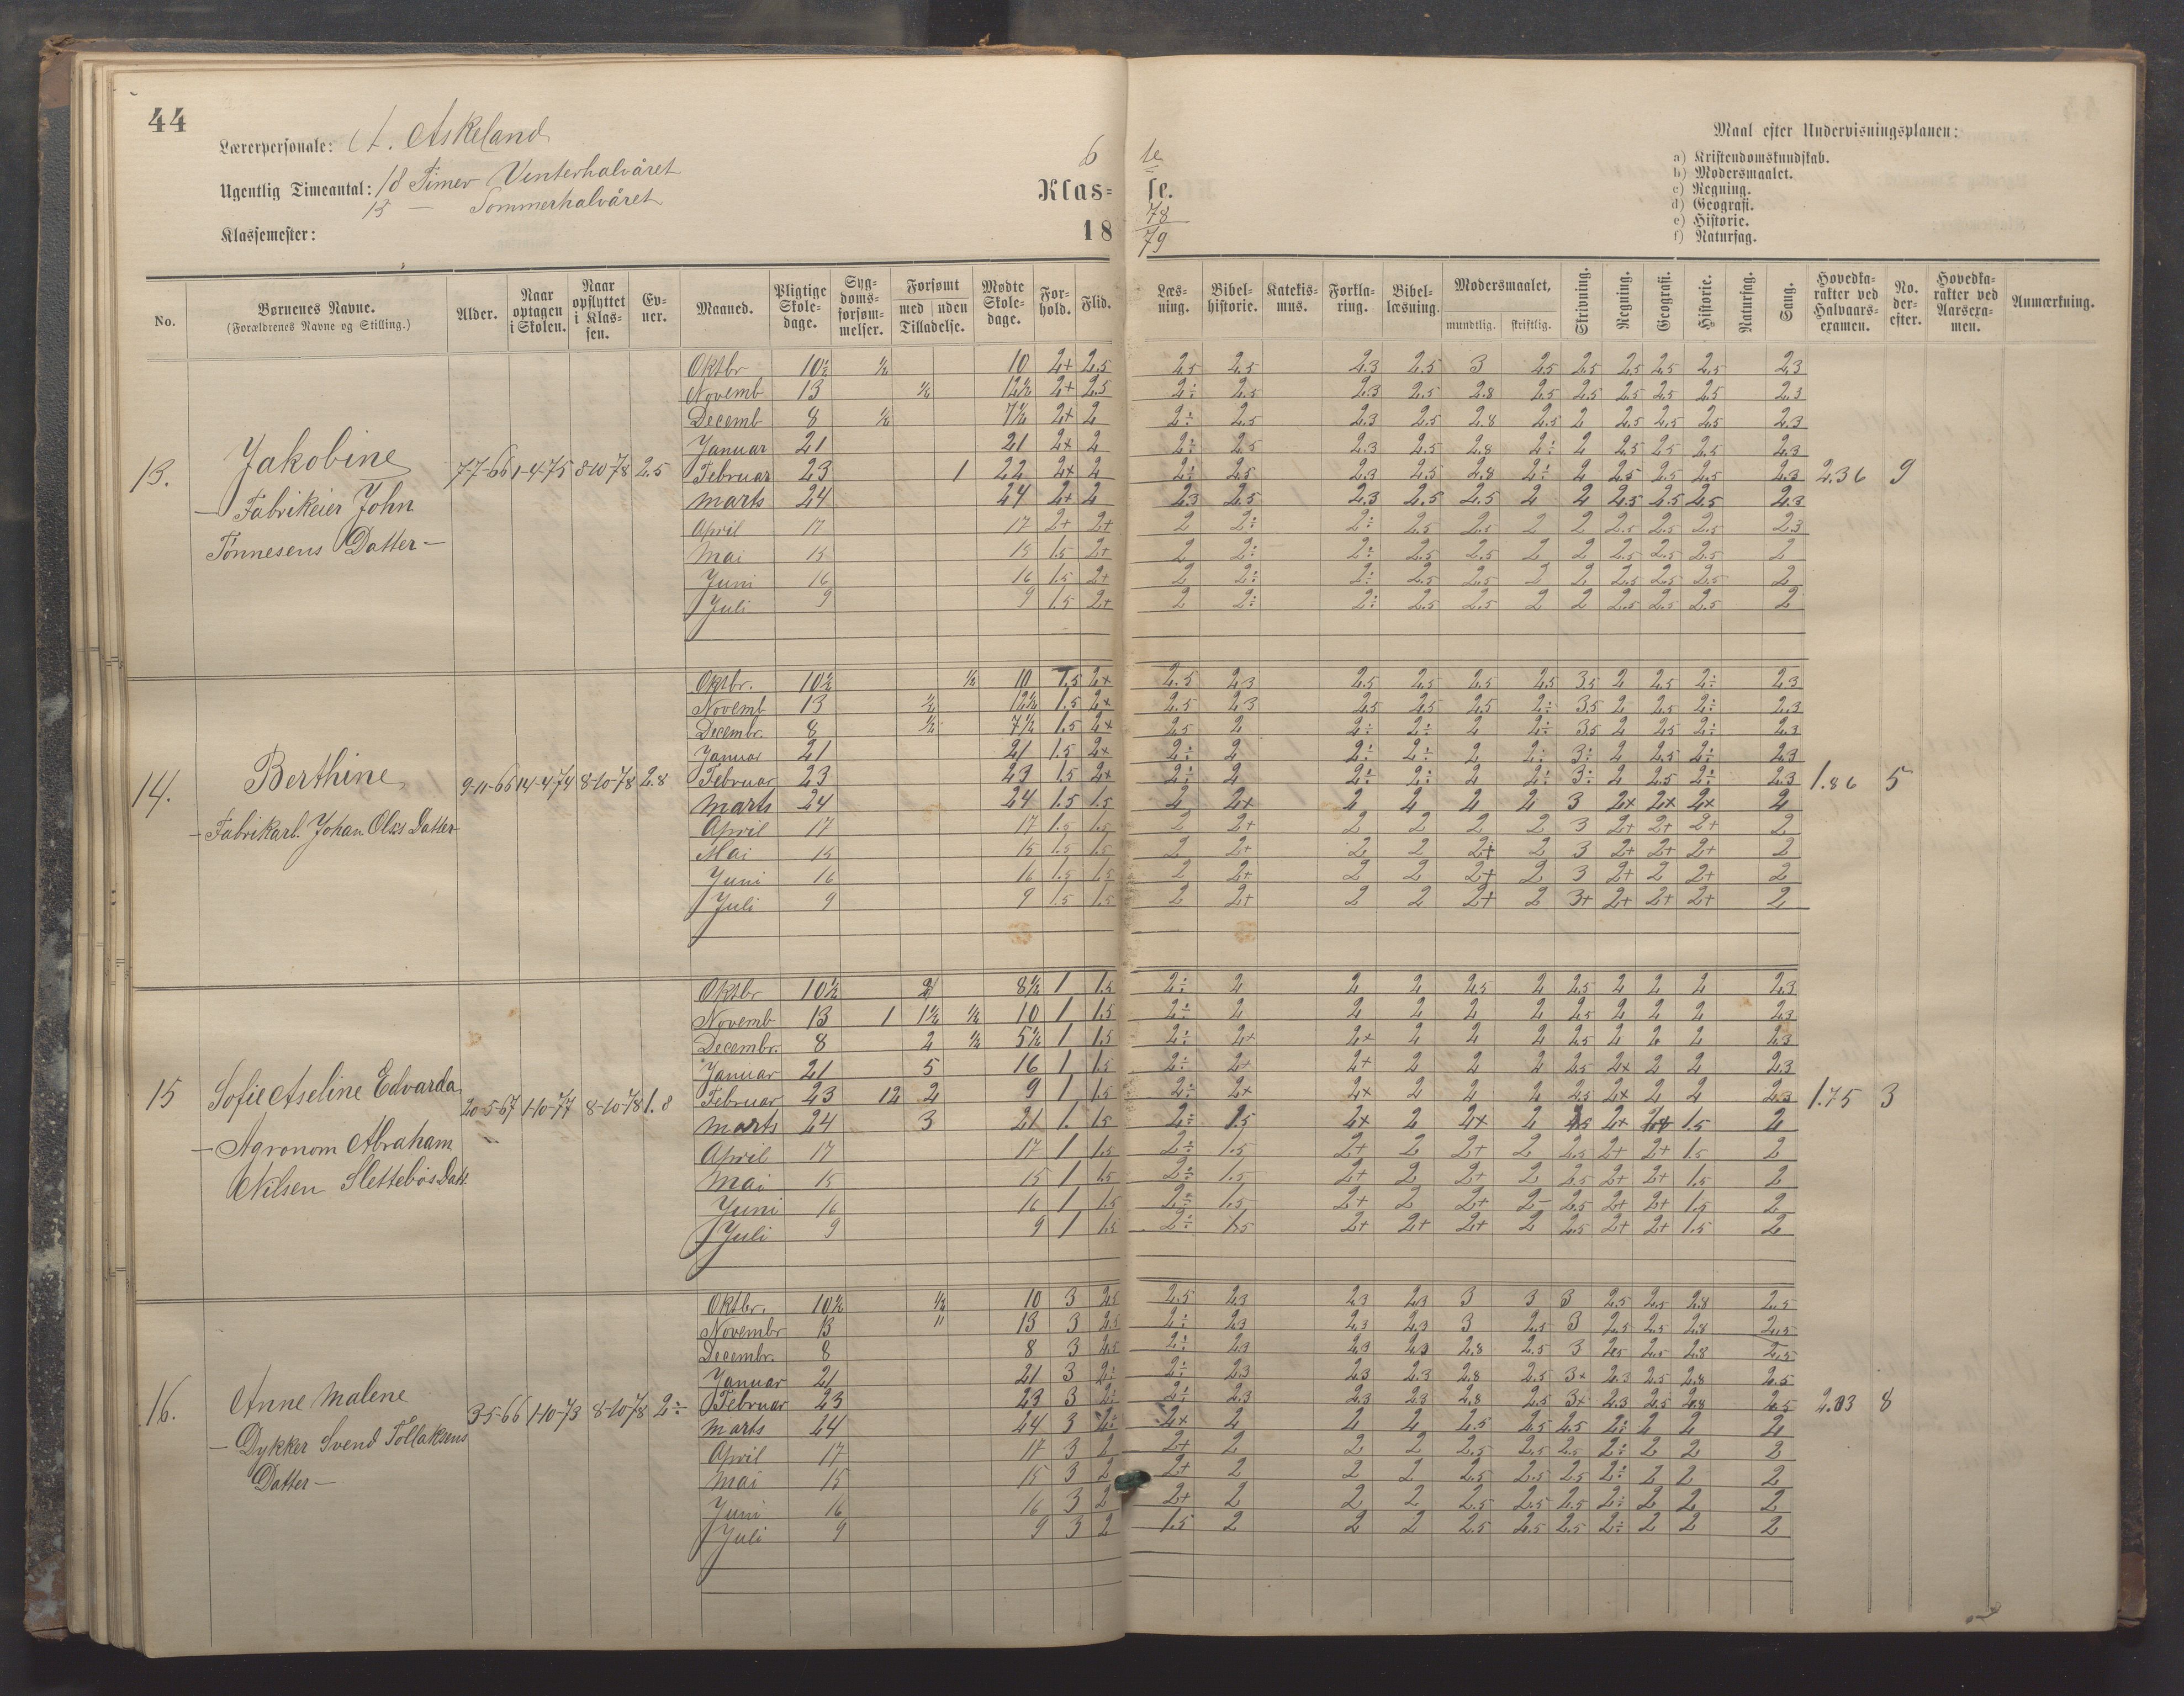 44
Lærerpersonale: A. Askeland
Ugentlig Timeantal: 18 Timer Vinterhalvåret
13 — Sommerhalvåret
Klassemester:
6te
Klasse.
18 78/79
Maal efter Undervisningsplanen:
a) Kristendomskundskab.
b) Modersmaalet.
c) Regning.
d) Geografi.
e) Historie.
f) Naturfag.
No. | Børnenes Navne. (Forældrenes Navne og Stilling.) | Alder. | Naar optagen i Skolen. | Naar opflyttet i Klassen. | Evner. | Maaned. | Pligtige Skoledage. | Sygdomsforsømmelser. | Forsømt med / uden Tilladelse. | Mødte Skoledage. | Forhold. | Flid. | Læsning. | Bibelhistorie. | Katekismus. | Forklaring. | Bibellæsning. | Modersmaalet, mundtlig. | skriftlig. | Skrivning. | Regning. | Geografi. | Historie. | Naturfag. | Sang. | Hovedkarakter ved Halvaarsexamen. | No. derefter. | Hovedkarakter ved Aarsexamen. | Anmærkning.
13. Jakobine
— Fabrikeier John
Tønnesens Datter —
7-7-66 1-4-75 8-10-78 2.5
Oktbr 10½ ½ 10 2+ 2.5 2.5 2.5 2.3 2.5 3 2.5 2.5 2.5 2.5 2.5 2.3
Novemb 13 ½ 12½ 2+ 2.5 2÷ 2.5 2.3 2.5 2.8 2.5 2.5 2.5 2.5 2.5 2.3
Decemb 8 ½ 7½ 2+ 2 2÷ 2.5 2.3 2.5 2.8 2.5 2 2.5 2.5 2.5 2.3
Januar 21 21 2+ 2 2÷ 2.5 2.3 2.5 2.8 2÷ 2 2.5 2.5 2.5 2.3
Februar 23 1 22 2+ 2 2÷ 2.5 2.3 2.5 2.8 2÷ 2 2.5 2.5 2.5 2.3 2.36 9
Marts 24 24 2+ 2 2.3 2.5 2.3 2.5 2.5 2 2 2.5 2.5 2.5 2.3
April 17 17 2+ 2+ 2 2÷ 2÷ 2.5 2.5 2 2 2.5 2.5 2.5 2.3
Mai 15 15 1.5 2+ 2 2÷ 2÷ 2.5 2.5 2 2 2.5 2.5 2.5 2
Juni 16 16 1.5 2+ 2 2÷ 2÷ 2.5 2.5 2 2 2.5 2.5 2.5 2
Juli 9 9 1.5 2+ 2 2÷ 2÷ 2.5 2.5 2 2 2.5 2.5 2.5 2
14. Berthine
— Fabrikarb. Johan Ols's Datter
9-11-66 14-4-74 8-10-78 2.8
Oktbr. 10½ ½ 10 1.5 2+ 2.5 2.3 2.5 2.5 2.5 2.5 3.5 2 2.5 2÷ 2.3
Novemb 13 ½ 12½ 1.5 2+ 2.5 2.3 2.5 2.5 2.5 2÷ 3.5 2 2.5 2÷ 2.3
Decembr. 8 ½ 7½ 1.5 2+ 2.5 2 2÷ 2÷ 2 2÷ 3.5 2 2.5 2÷ 2.3
Januar 21 21 1.5 2+ 2÷ 2 2÷ 2÷ 2 2÷ 3÷ 2 2.5 2÷ 2.3
Februar 23 23 1.5 2+ 2÷ 2 2÷ 2÷ 2 2÷ 3÷ 2 2.5 2÷ 2.3 1.86 5
Marts 24 24 1.5 1.5 2 2+ 2 2 2 2 3 2+ 2+ 2+ 2
April 17 17 1.5 1.5 2 2+ 2 2 2 2 3 2+ 2+ 2+ 2
Mai 15 15 1.5 1.5 2 2+ 2 2 2+ 2 3 2+ 2+ 2+ 2
Juni 16 16 1.5 1.5 2 2+ 2 2 2+ 2 3 2+ 2 2+ 2
Juli 9 9 1.5 1.5 2 2+ 2 2 2+ 2 3+ 2+ 2+ 2+ 2
15 Sofie Aseline Edvarda
— Agronom Abraham
Nilsen Slettebøs Datt.
20-5-67 1-10-77 8-10-78 1.8
Oktbr 10½ 2 8½ 1 1.5 2÷ 2 2 2 2.5 2 2.5 2 2 2 2.3
Novemb 13 1 1½ ½ 10 1 1.5 2÷ 2 2 2 2 2 2.5 2 2 2 2.3
Decembr. 8 2 ½ 5½ 1 1.5 2÷ 2+ 2+ 2 2 2 2.5 2 2 2 2.3
Januar 21 5 16 1 1.5 2÷ 2+ 2+ 2 2 2 2.5 2+ 2 2 2.3
Februar 23 12 2 9 1 1.5 2÷ 2+ 2+ 2 2 2 2.5 2+ 2 2 2.3 1.75 3
Marts 24 3 21 1. 1.5 2÷ 1.5 2+ 2 2+ 2 2+ 1.5 2
April 17 17 1 1.5 2÷ 1.5 2+ 2 2+ 2 2.5 2+ 2+ 1.5 2
Mai 15 15 1 1.5 2÷ 1.5 2+ 2 2+ 2 2.5 2+ 2+ 1.5 2
Juni 16 16 1 1.5 2÷ 1.5 2+ 2 2+ 2- 2.5 2+ 2+ 1.5 2
Juli 9 9 1 1.5 2÷ 1.5 2+ 2+ 2+ 2 2.5 2+ 2+ 1.5 2
16. Anne Malene
— Dykker Svend Tollaksens
Datter —
3-5-66 1-10-73 8-10-78 2÷
Oktbr. 10½ ½ 10 3 2.5 2.5 2.3 2.3 2.3 3 3 3 2.5 2.5 2.8 2.5
Novembr 13 " 13 3 2.5 2÷ 2.3 2.3 2.3 3 2.5 3 2.5 2.5 2.8 2.5
Decembr. 8 8 3 2.5 2÷ 2.3 2.3 2.3 2.8 2.5 3 2.5 2.5 2.8 2.5
Januar 21 21 3 2÷ 2÷ 2.3 2.3 2.3 2.8 2.5 3+ 2.3 2.5 2.8 2.5
Februar 23 23 3 2÷ 2÷ 2.3 2.3 2.3 2.8 2.5 3+ 2.3 2.5 2.8 2.5 2.03 8
Marts 24 24 3 2÷ 2+ 2 2 2 2.5 2.5 2.5 2÷ 2 2 2
April 17 17 3 2 2+ 2 2 2 2.5 2.5 2.5 2÷ 2 2 2
Mai 15 15 3 2 2+ 2 2 2 2.5 2.5 2.5 2÷ 2 2 2
Juni 16 16 3 2 2+ 2 2 2 2.5 2.5 2.5 2÷ 2 2 2
Juli 9 9 3 2 1.5 2 2 2 2.5 2.5 2.5 2÷ 2 2 2